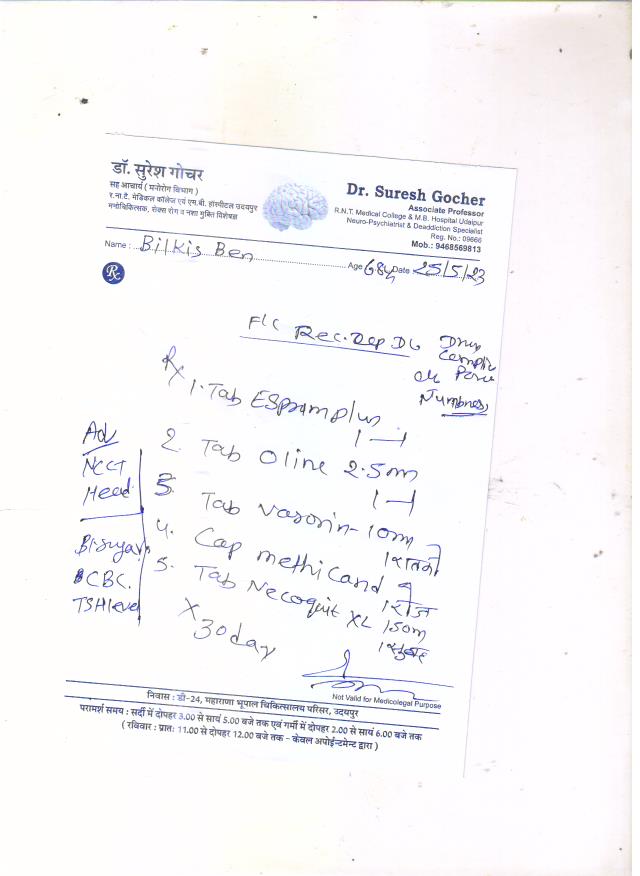 डॉ. सुरेश गोचर
सह आचार्य ( मनोरोग विभाग )
र.ना.टै. मेडिकल कॉलेज एवं एम.बी. हॉस्पीटल उदयपुर
मनोचिकित्सक, सेक्स रोग व नशा मुक्ति विशेषज्ञ
Dr. Suresh Gocher
Associate Professor
R.N.T. Medical College & M.B. Hospital Udaipur
Neuro-Psychiatrist & Deaddiction Specialist
Reg. No.: 09666
Mob.: 9468569813
Name : Bilkis Ben Age 68y Date 25/5/23
Rx
Rec. Dep
Numbness
Rx
1. Tab Espram plus
1 — 1
2. Tab Oline 2.5m
1 — 1
3. Tab Vasorin - 10m
4. Cap methicand
5. Tab Necoquit XL 150m
x 30 day
Adv
NCCT
Head
CBC.
TSH level
Not Valid for Medicolegal Purpose
निवास : डी-24, महाराणा भूपाल चिकित्सालय परिसर, उदयपुर
परामर्श समय : सर्दी में दोपहर 3.00 से सायं 5.00 बजे तक एवं गर्मी में दोपहर 2.00 से सायं 6.00 बजे तक
( रविवार : प्रातः 11.00 से दोपहर 12.00 बजे तक - केवल अपोईन्टमेन्ट द्वारा )